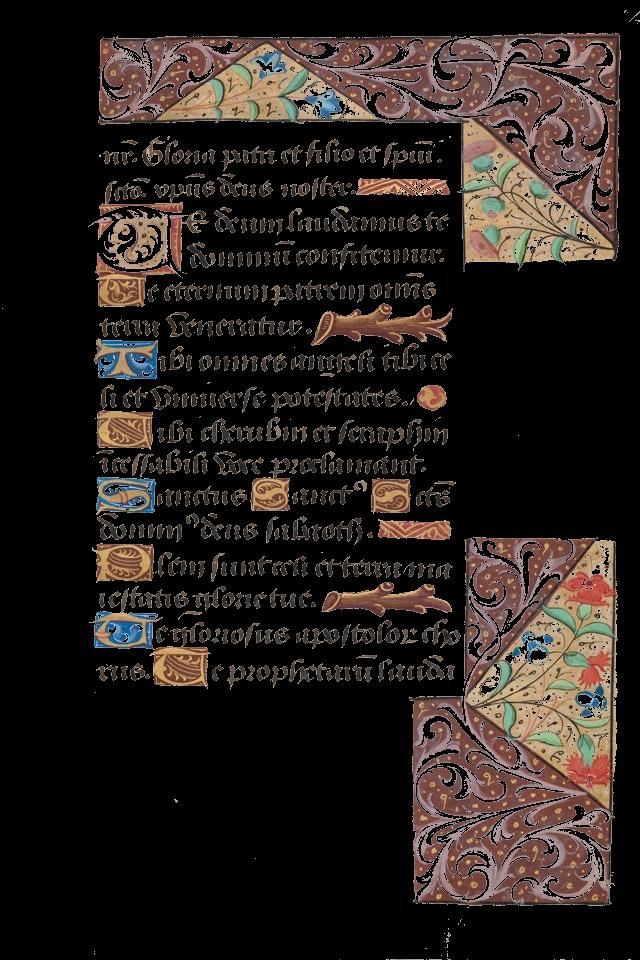 nr̄. Gloria patri et filio et spūi.
sctō. vpūs dēus noster.
TE deum laudamus te
dominū confitemur.
Te eternum patrem omīs
terra veneratur.
Tibi omnes angeli tibi ce
li et vniuerse potestates.
Tibi cherubin et seraphin
īcessabili voce proclamant.
Sanctus Sanctꝰ Sctūs
dominꝰ deus sabaoth.
Pleni sunt celi et terra ma
iestatis glorie tue.
Te gloriosus apostolor cho
rus. Te prophetarū lauda